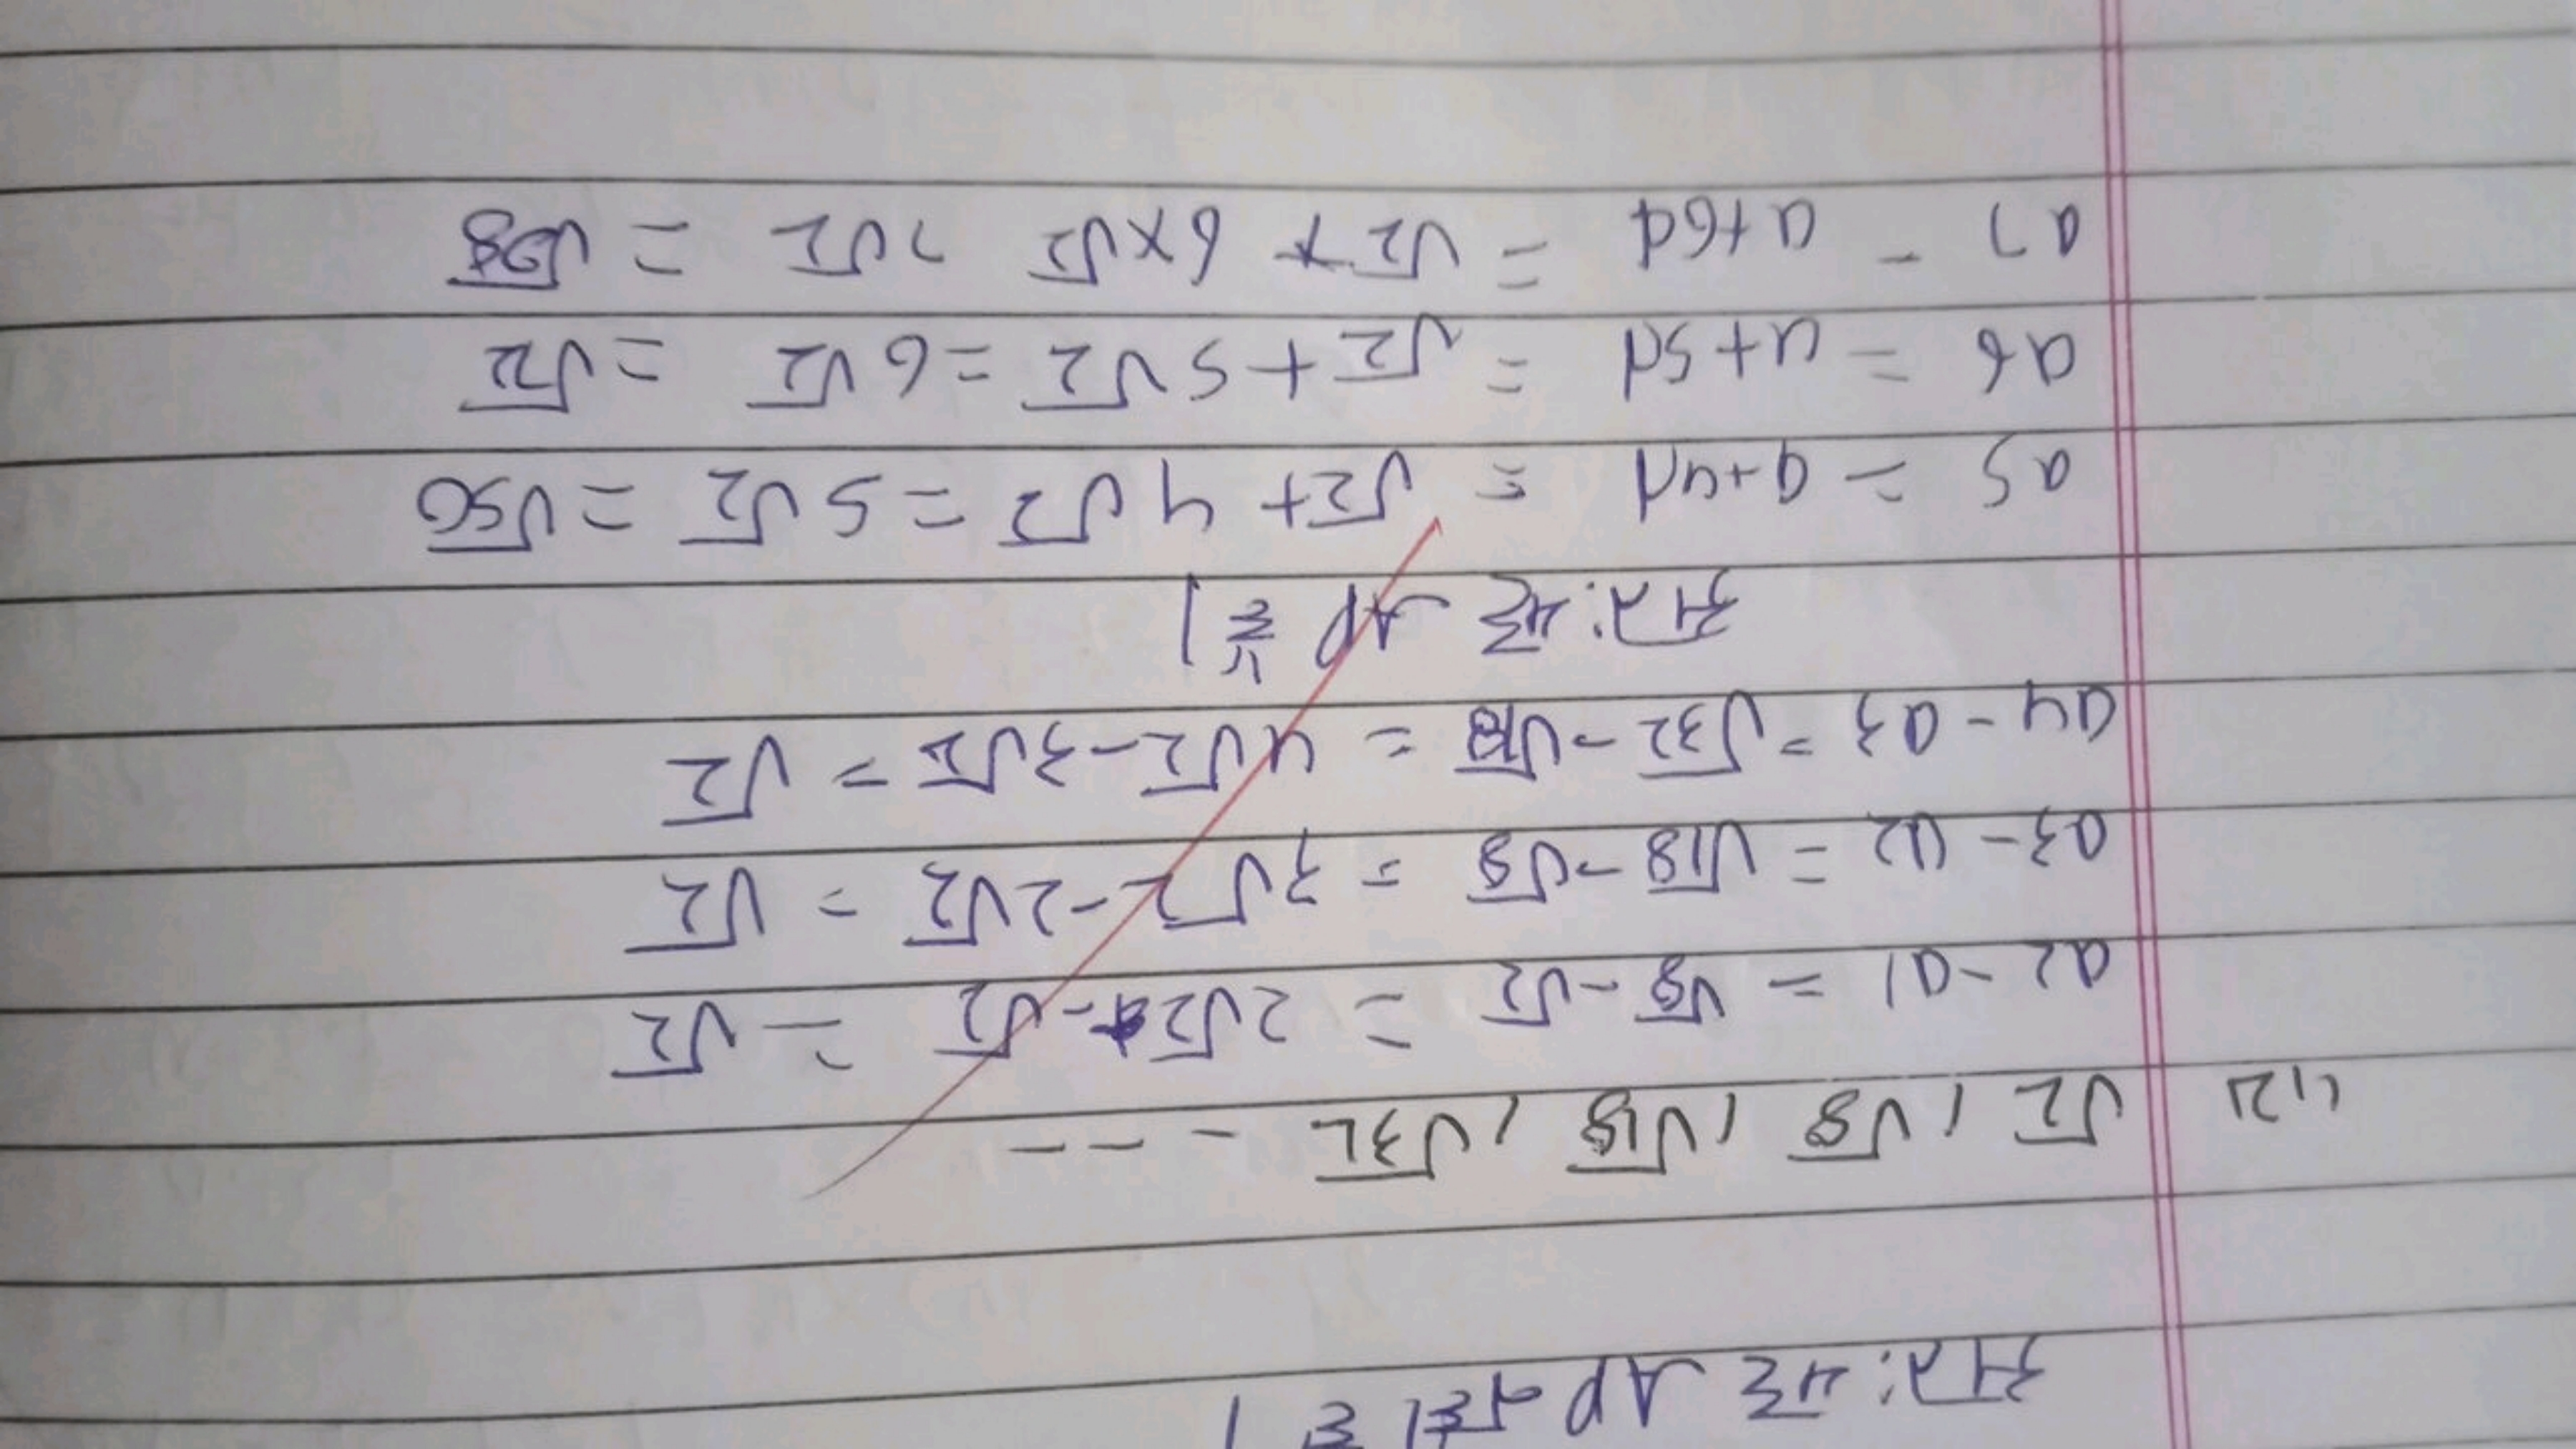 अत: यह AP नहीं है।
(12) √2, √8, √18, √32 - - - -
a2 - a1 = √8 - √2 = 2√2 - √2 = √2
a3 - a2 = √18 - √8 = 3√2 - 2√2 = √2
a4 - a3 = √32 - √18 = 4√2 - 3√2 = √2
अत: यह AP है।
a5 = a+4d = √2 + 4√2 = 5√2 = √50
a6 = a+5d = √2 + 5√2 = 6√2 = √72
a7 - a+6d = √2 + 6×√2 7√2 = √98